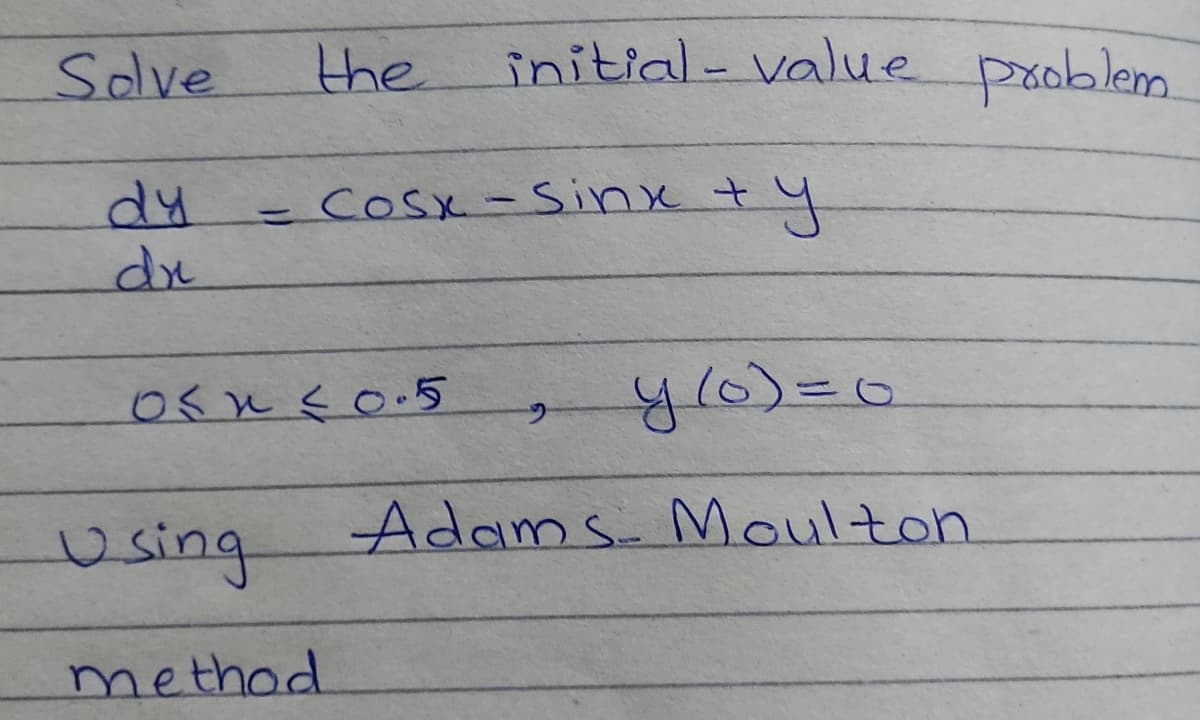 Solve the initial-value problem
dy = cosx - sinx + y
dx
0 ≤ x ≤ 0.5 , y(0) = 0
Using Adams-Moulton
method